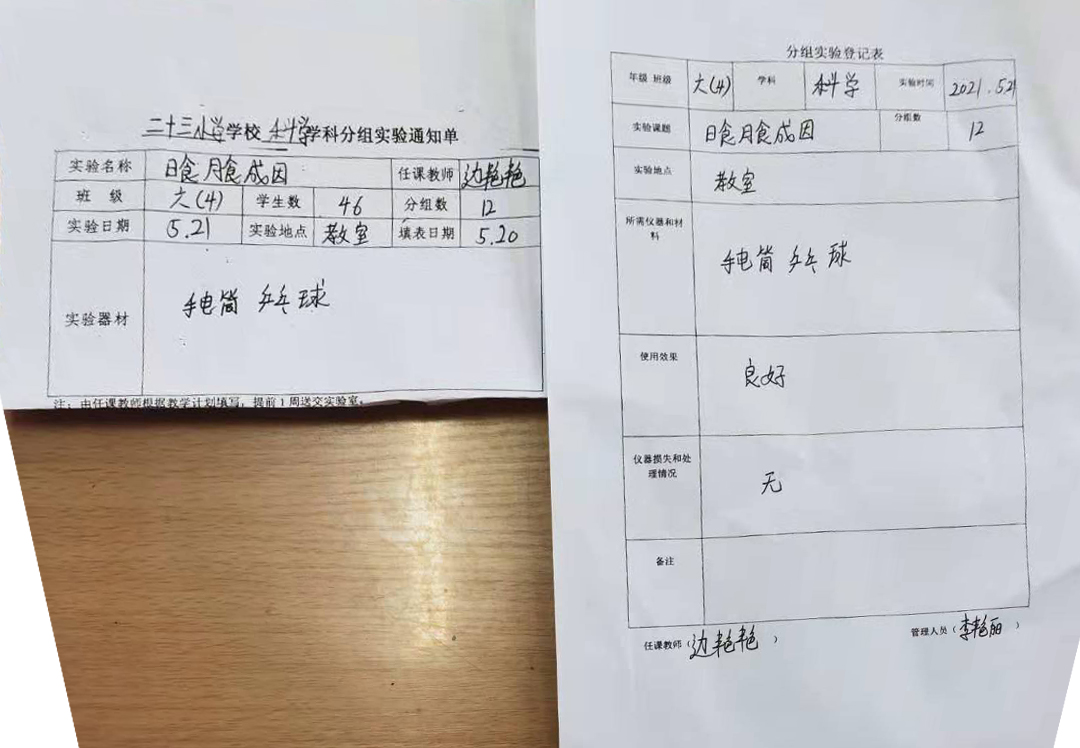 二十三小学学校 科学学科分组实验通知单
实验名称 日食月食成因 任课教师 边艳艳
班 级 六(4) 学生数 46 分组数 12
实验日期 5.21 实验地点 教室 填表日期 5.20
实验器材 手电筒 乒乓球
注：由任课教师根据教学计划填写，提前1周送交实验室。
分组实验登记表
年级 班级 六(4) 学科 科学 实验时间 2021.5.21
实验课题 日食月食成因 分组数 12
实验地点 教室
所需仪器和材
料
手电筒 乒乓球
使用效果 良好
仪器损失和处
理情况
无
备注
任课教师（边艳艳 ） 管理人员（李艳丽 ）